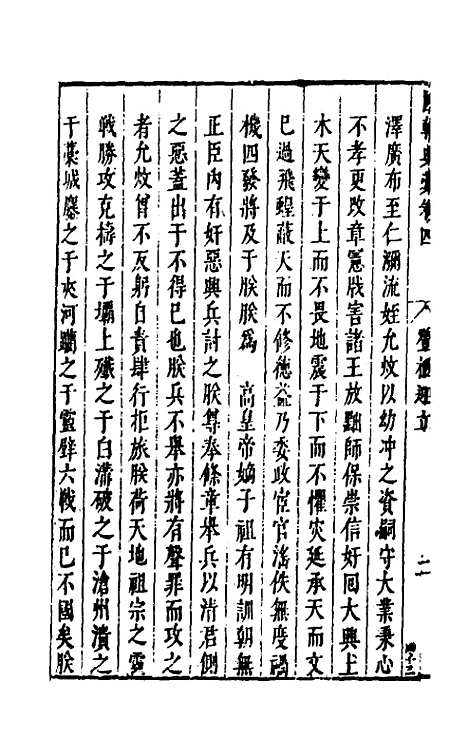 國朝典彙卷四
登極建立
二
澤廣布至仁瀰流姪允炆以幼冲之資嗣守大業秉心
不孝更改章憲戕害諸王放黜師保崇信奸回大興土
木天變于上而不畏地震于下而不懼灾延承天而文
已過飛蝗蔽天而不修德益乃委政宦官滛佚無度禍
機四發將及于朕朕爲　高皇帝嫡子祖有明訓朝無
正臣內有奸惡興兵討之朕尊奉條章舉兵以清君側
之惡蓋出于不得已也朕兵不舉亦將有聲罪而攻之
者允炆曾不反躬自責肆行拒旅朕荷天地祖宗之靈
戰勝攻克𢷬之于壩上殲之于白溝破之于滄州潰之
于藁城鏖之于夾河躪之于靈壁六戰而已不國矣朕